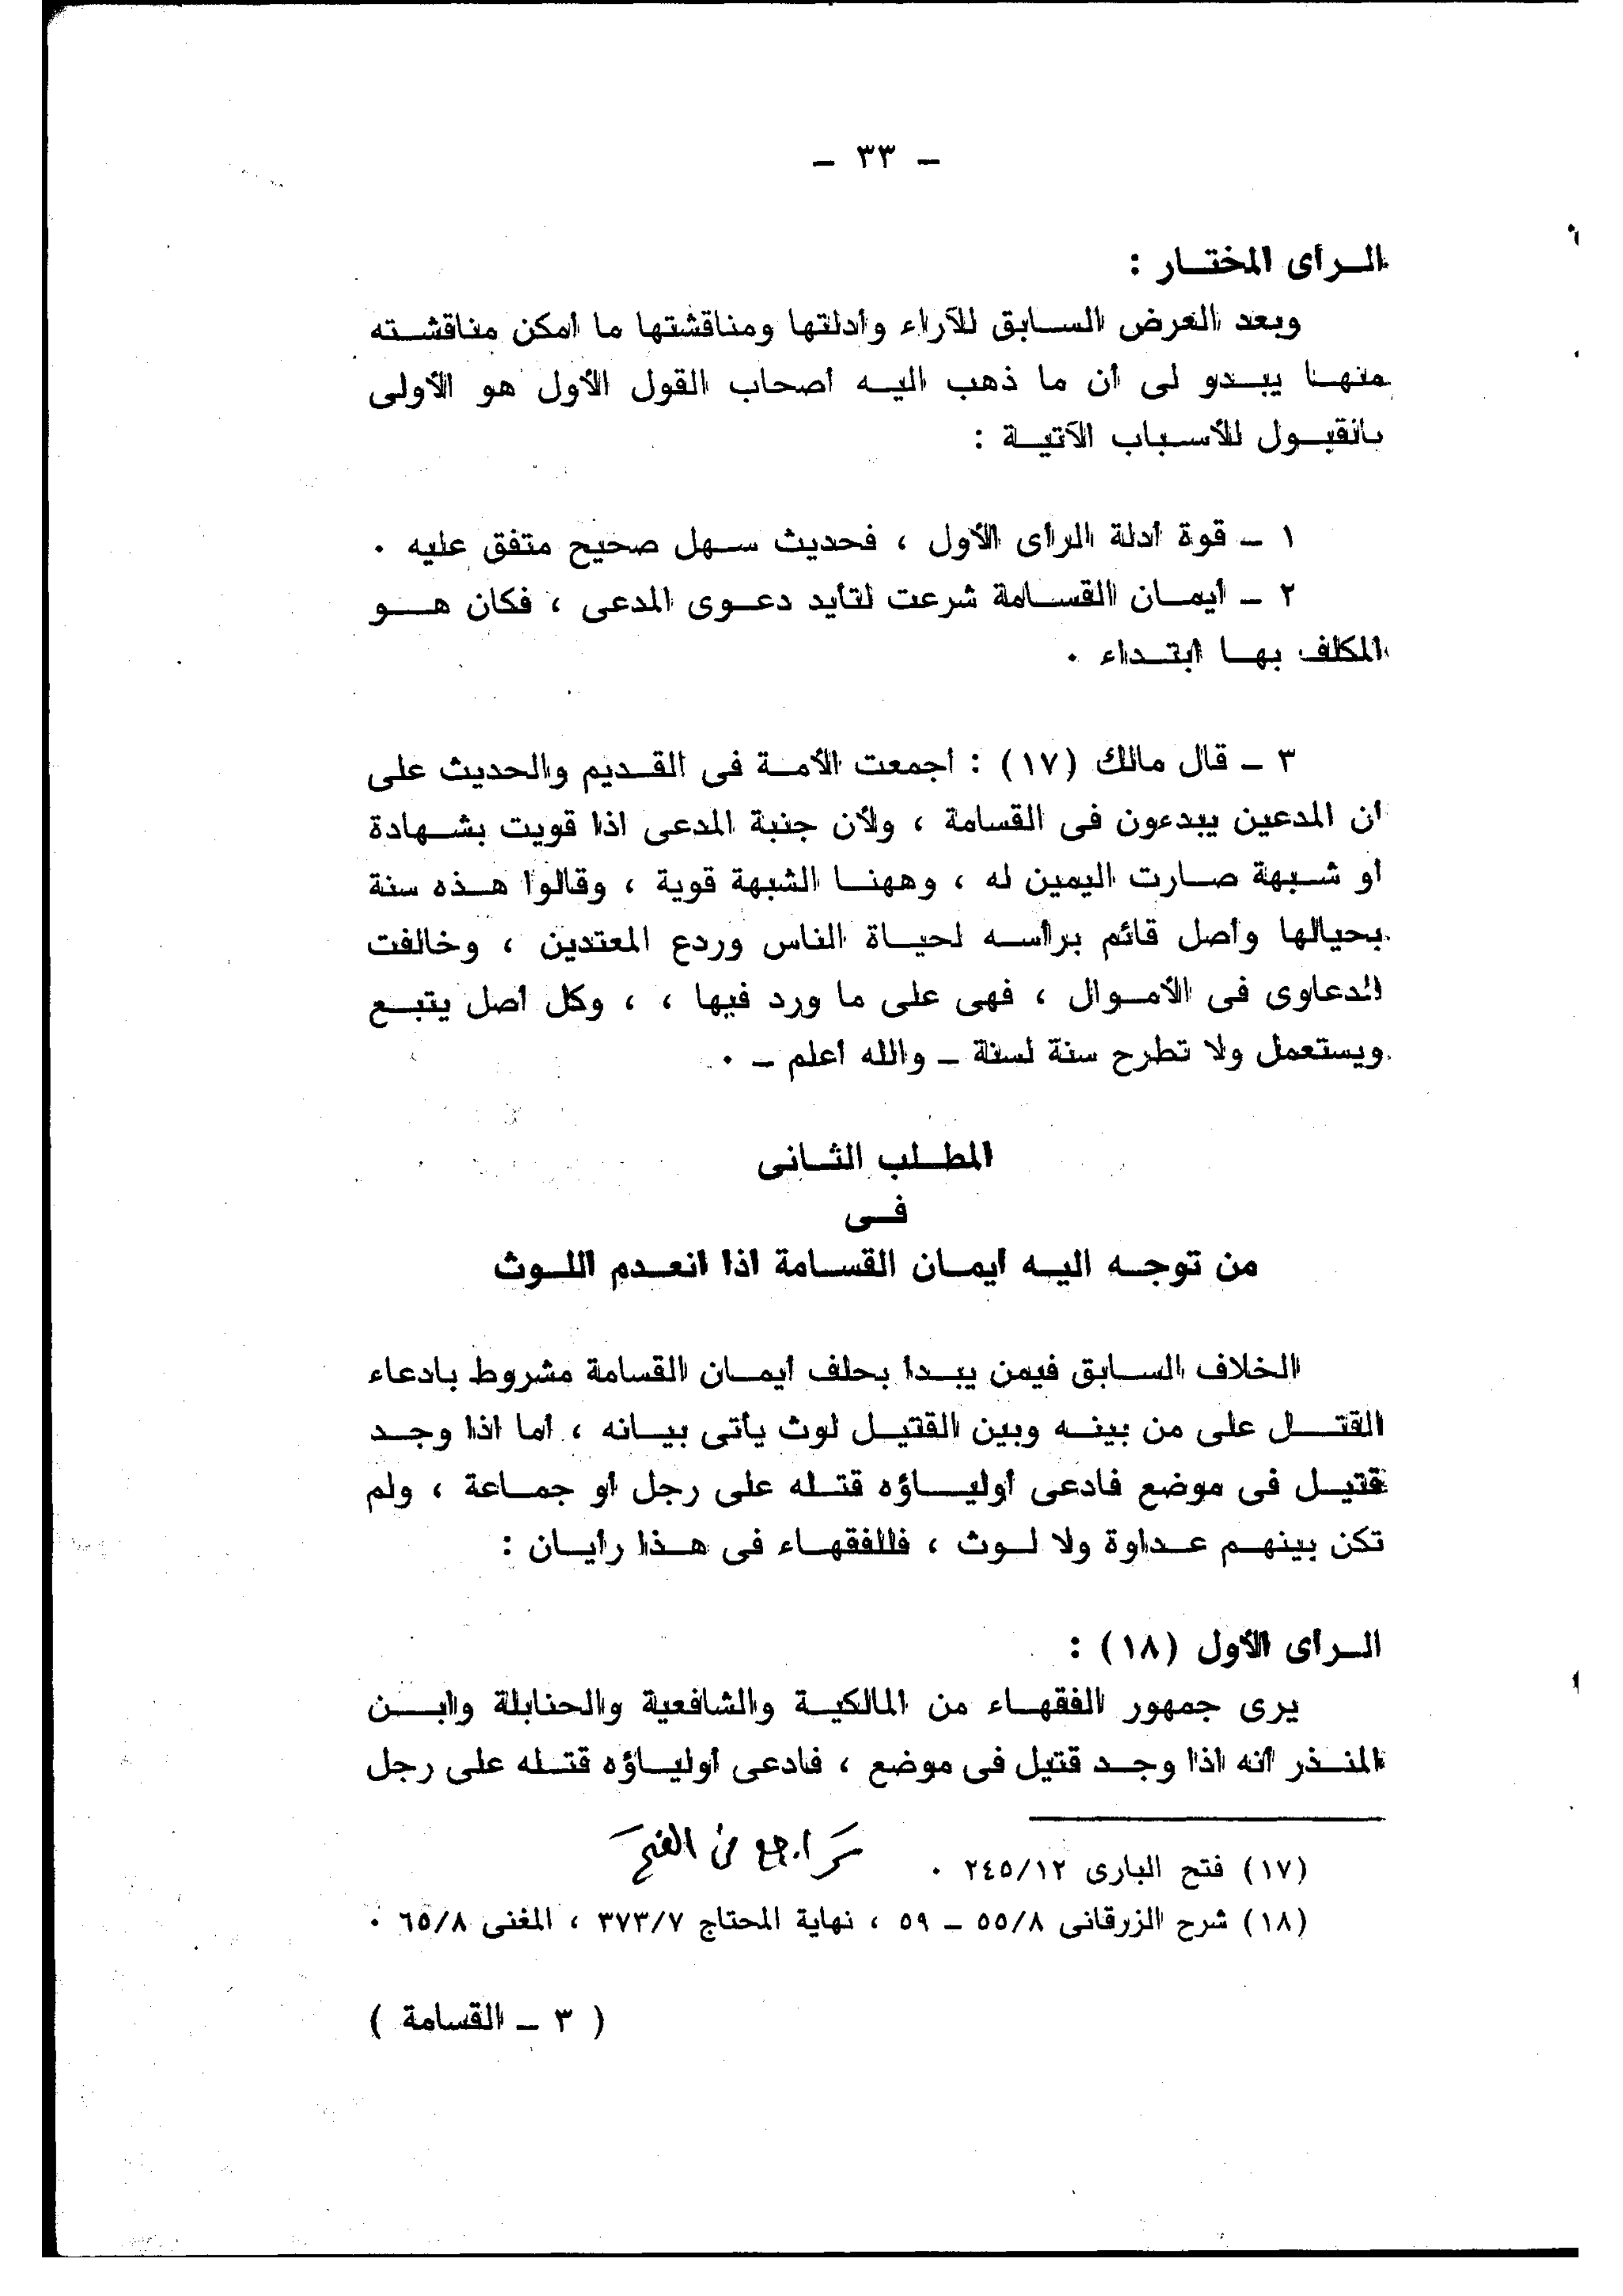 – ٣٣ –
الـرأى المختـار :
وبعد العرض السـابق للآراء وأدلتها ومناقشتها ما أمكن مناقشـته
منهـا يبـدو لى أن ما ذهب اليـه أصحاب القول الأول هو الأولى
بالقبـول للأسـباب الآتيـة :
١ – قوة أدلة الرأى الأول ، فحديث سـهل صحيح متفق عليه .
٢ – أيمـان القسـامة شرعت لتأيد دعـوى المدعى ، فكان هـو
المكلف بهـا ابتـداء .
٣ – قال مالك (١٧) : أجمعت الأمـة فى القـديم والحديث على
أن المدعين يبدءون فى القسامة ، ولأن جنبة المدعى اذا قويت بشـهادة
أو شـبهة صـارت اليمين له ، وههنـا الشبهة قوية ، وقالوا هـذه سنة
بحيالها وأصل قائم برأسـه لحيـاة الناس وردع المعتدين ، وخالفت
الدعاوى فى الأمـوال ، فهى على ما ورد فيها ، ، وكل أصل يتبـع
ويستعمل ولا تطرح سنة لسنة – والله أعلم – .
المطـلب الثـانى
فـى
من توجـه اليـه ايمـان القسـامة اذا انعـدم اللـوث
الخلاف السـابق فيمن يبـدأ بحلف أيمـان القسامة مشروط بادعاء
القتـل على من بينـه وبين القتيـل لوث يأتى بيـانه ، أما اذا وجـد
قتيـل فى موضع فادعى أوليـاؤه قتـله على رجل أو جمـاعة ، ولم
تكن بينهـم عـداوة ولا لـوث ، فللفقهـاء فى هـذا رأيـان :
الـرأى الأول (١٨) :
يرى جمهور الفقهـاء من المالكيـة والشافعية والحنابلة وابـن
المنـذر أنه اذا وجـد قتيل فى موضع ، فادعى أوليـاؤه قتـله على رجل
(١٧) فتح البارى ٢٤٥/١٢ .
(١٨) شرح الزرقانى ٥٥/٨ – ٥٩ ، نهاية المحتاج ٣٧٣/٧ ، المغنى ٦٥/٨ .
( ٣ – القسامة )